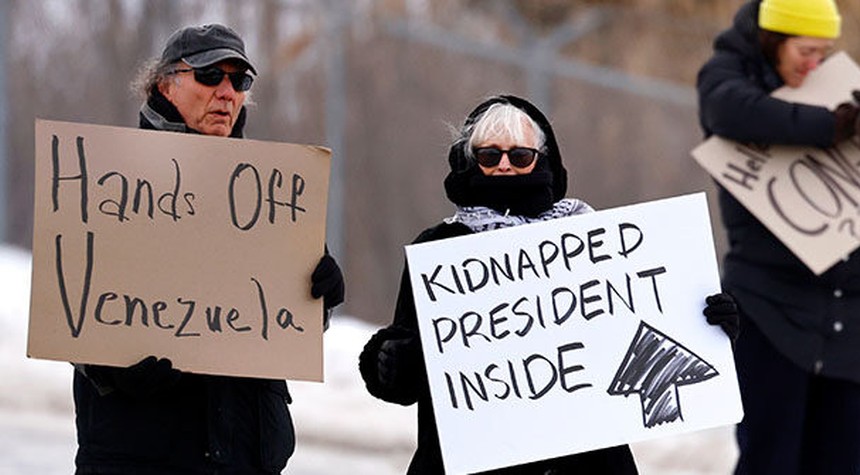 Hands Off
Venezuela
KIDNAPPED
PRESIDENT
INSIDE